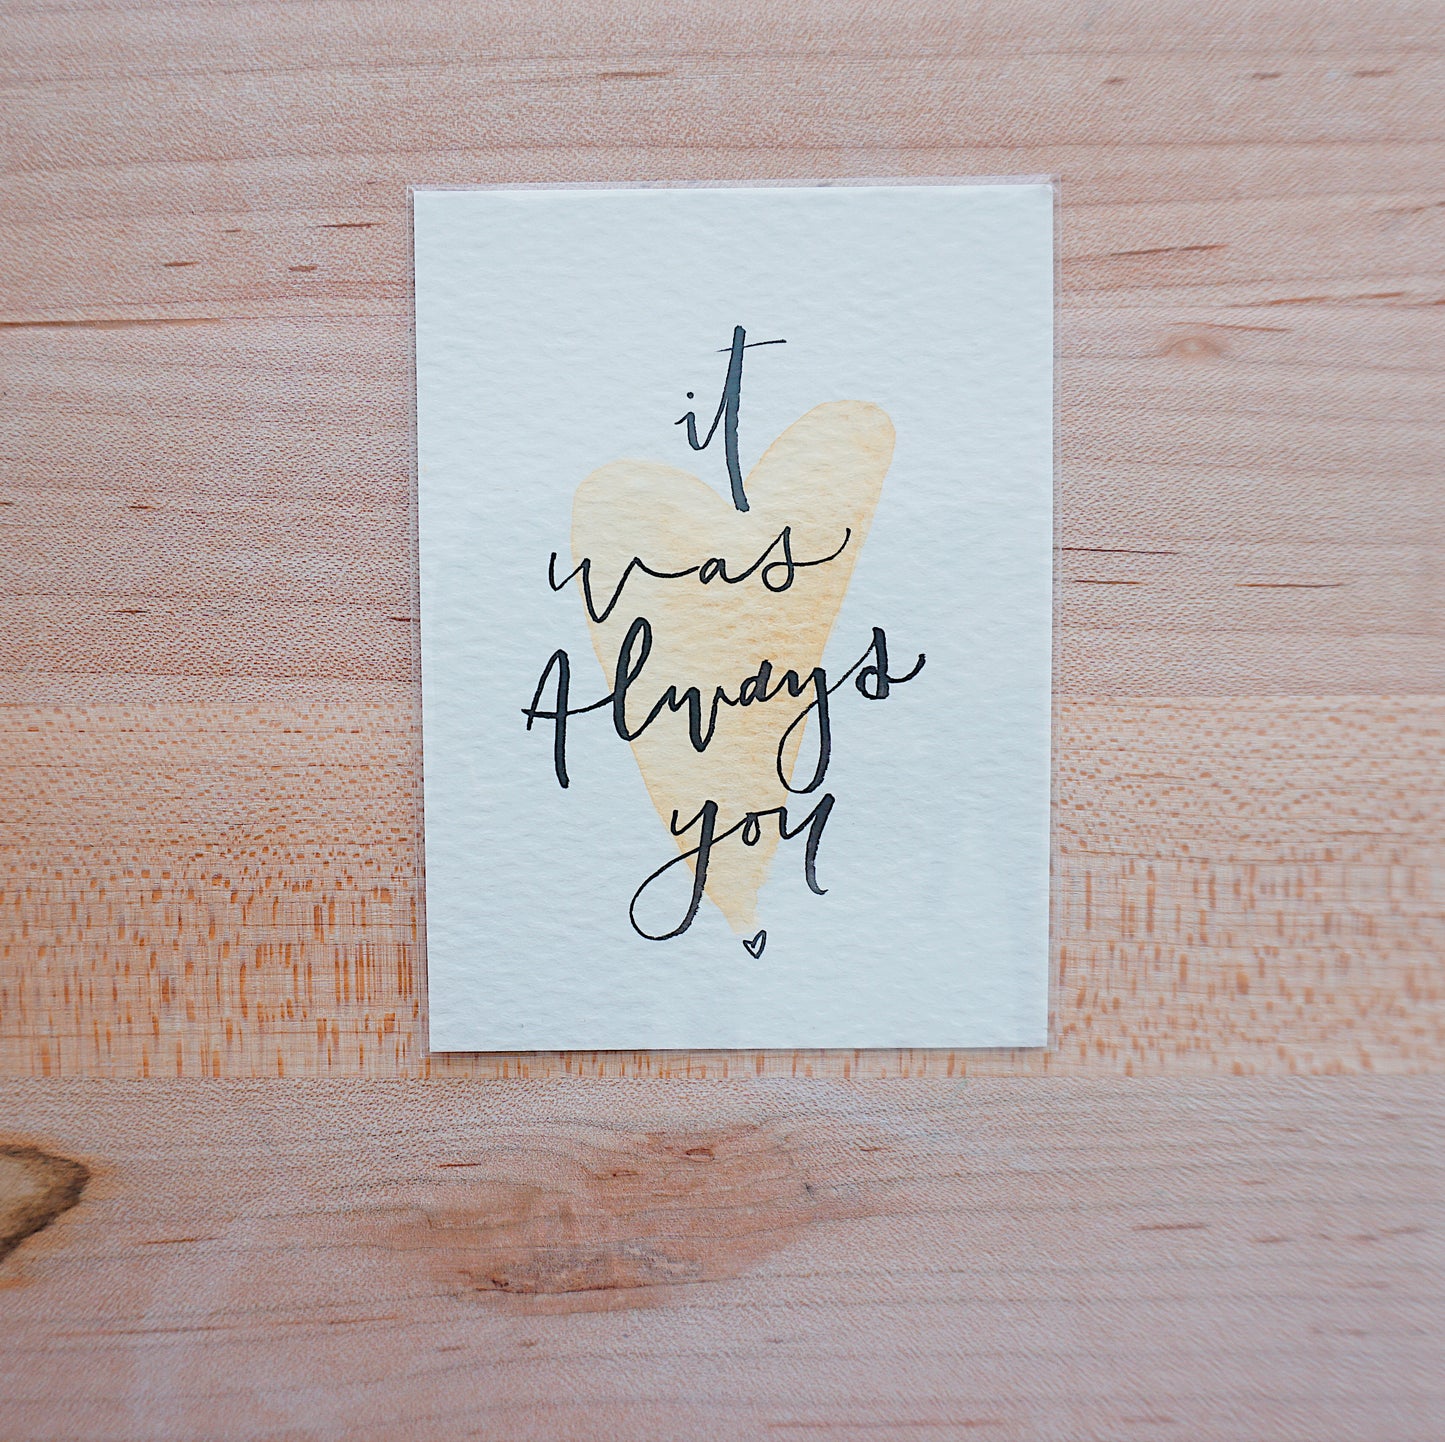 it
was
Always
you